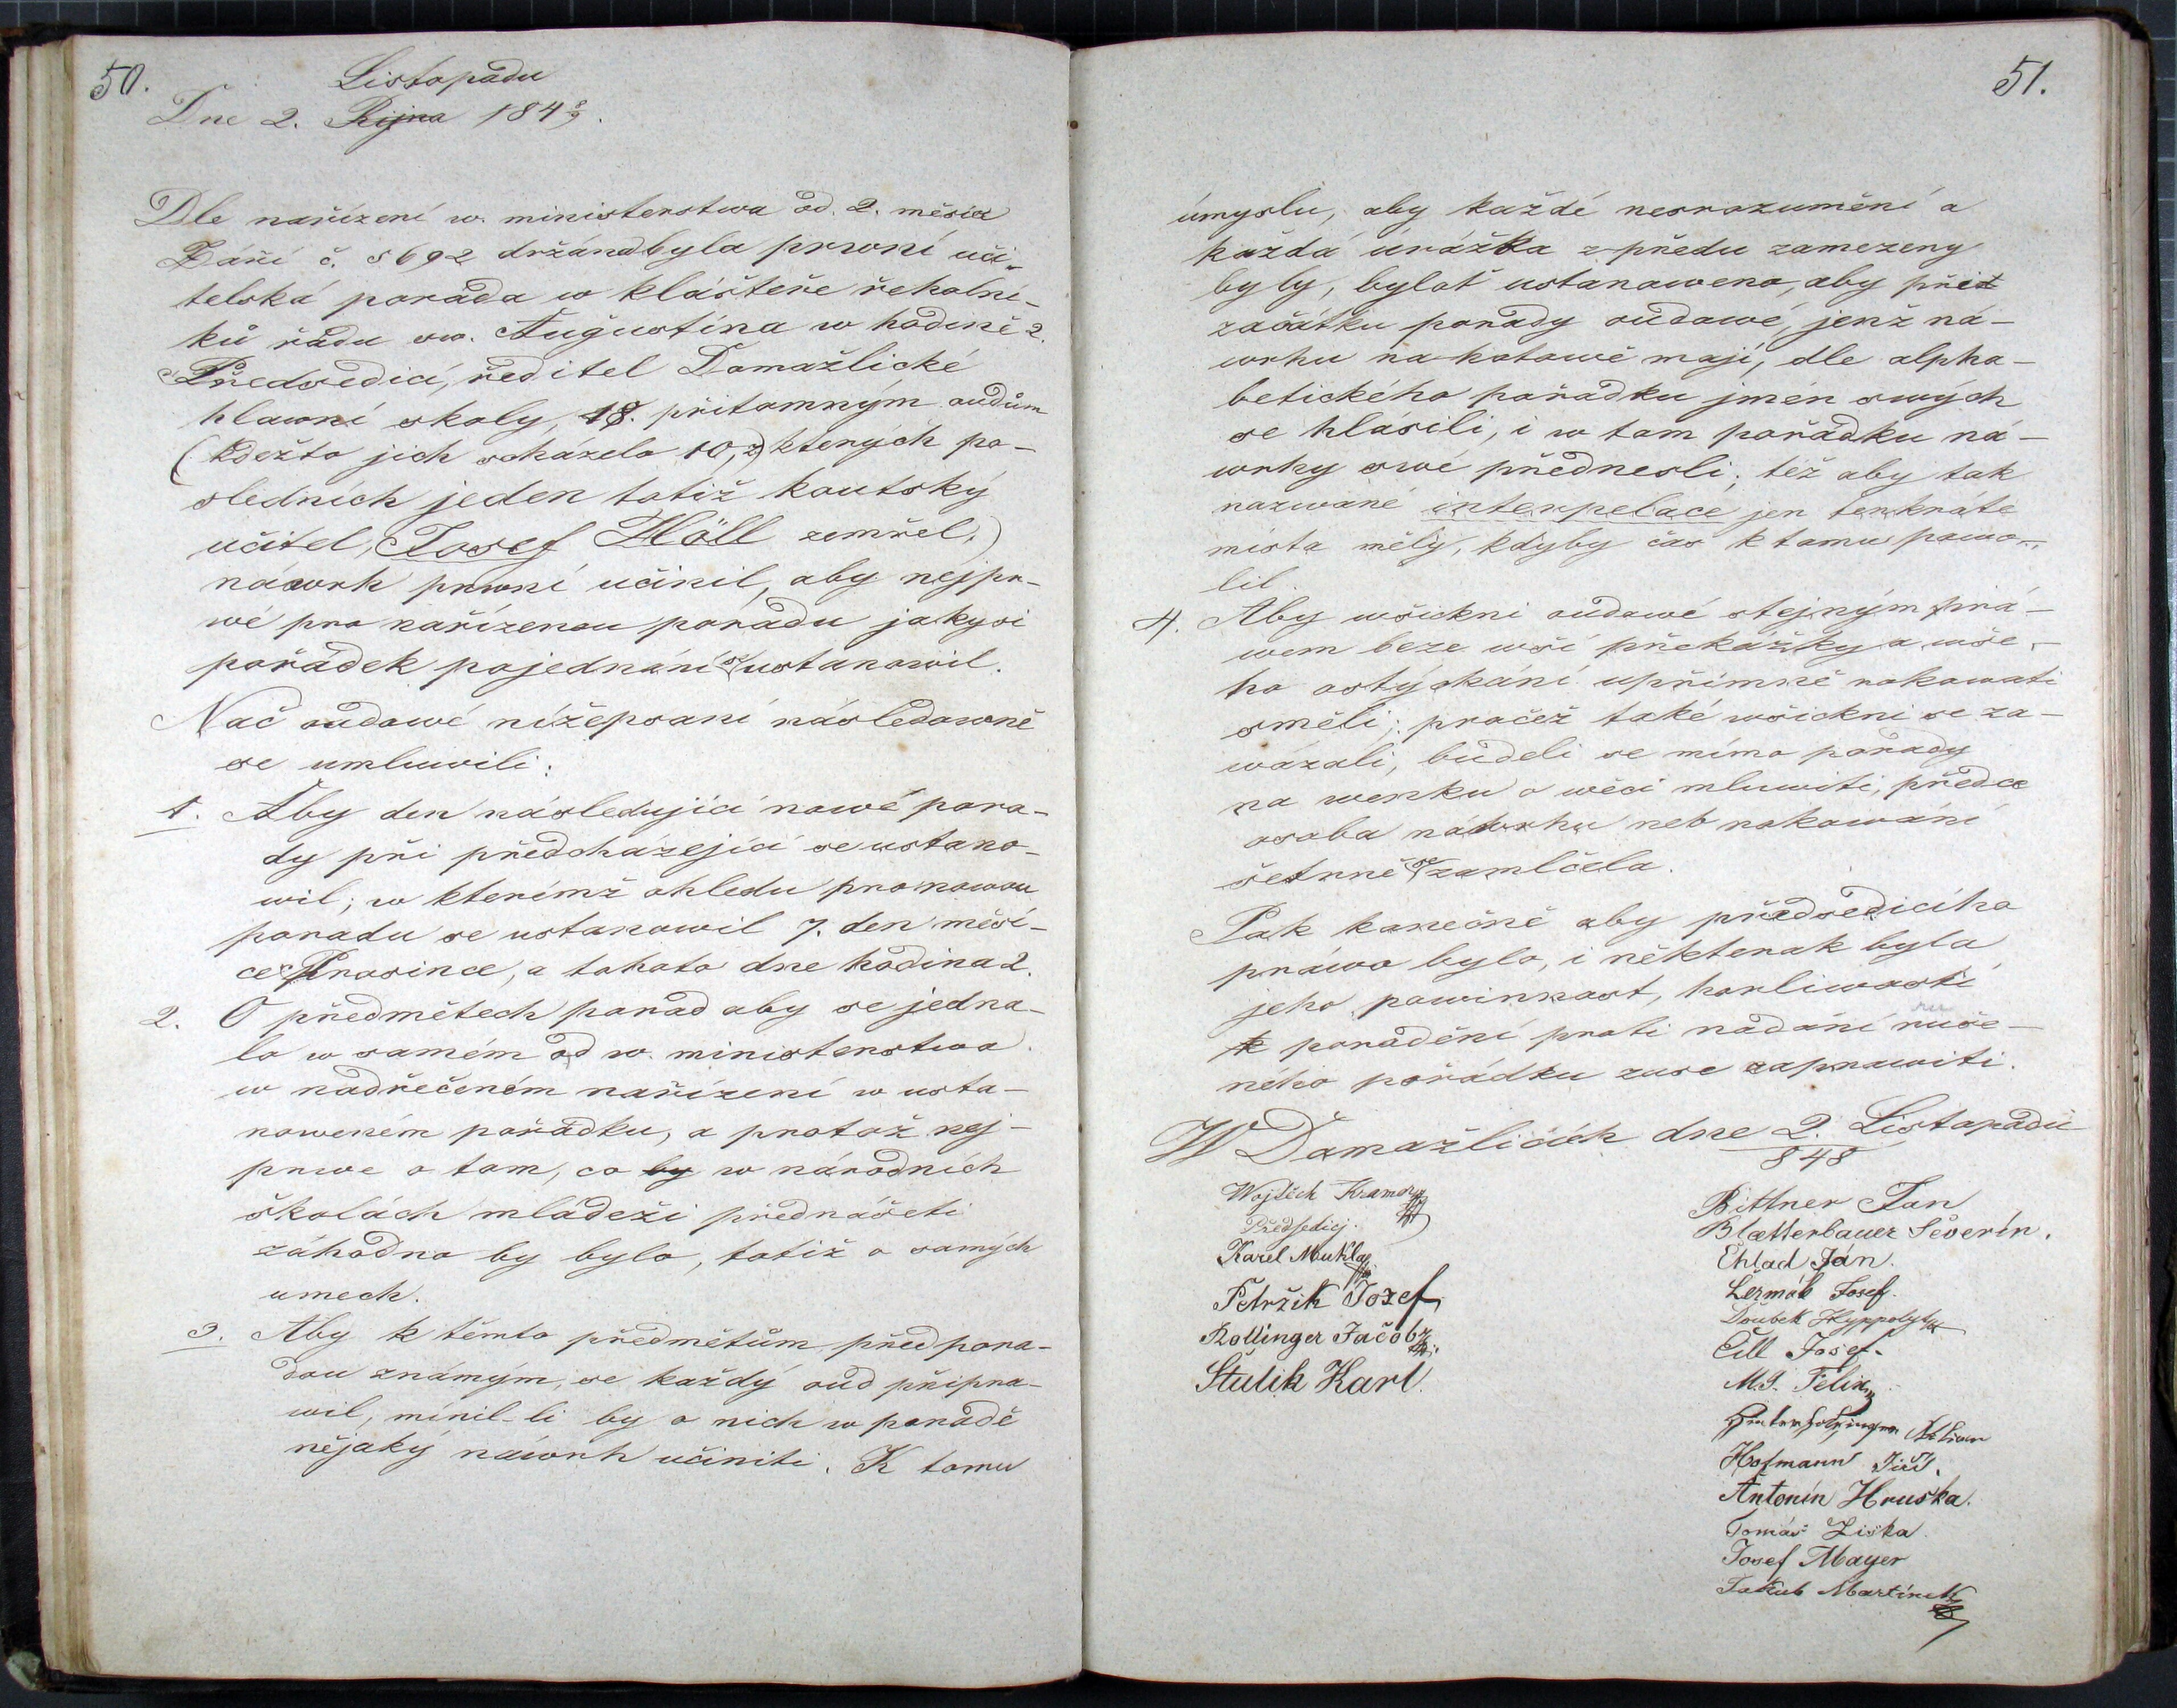 50.
Listopadu
Dne 2. Rijna 184
Dle nařízení w. ministerstwa od. 2. měsíce
Září č. 5692 držána byla prwní uči-
telská porada w klášteře řeholní-
ků řádu sw. Augustina w hodině 2.
Předsedící, ředitel Domažlické
hlawní skoly, 18. přítomným audům
(kdežto jich scházelo 10, z kterých po-
sledních jeden totiž koutský
učitel, Josef Höll zemřel,)
náwrh prwní učinil, aby nejpr-
wé pro nařízenou poradu jakysi
pořádek pojednání se ustanowil.
Nač audowé nížepsaní následowně
se umluwili:
1. Aby den následující nowé pora-
dy při předcházející se ustano-
wil; w kterémž ohledu pro nowou
poradu se ustanowil 7. den měsí-
ce Prosince, a tohoto dne hodina 2.
2. O předmětech porad aby se jedna-
lo w samém od w. ministerstwa
w nadřečeném nařízení w usta-
noweném pořádku, a protož nej-
prwe o tom, co by w národních
školách mládeži přednášeti
záhodno by bylo, totiž o samých
umech.
3. Aby k těmto předmětům před pora-
dou známým, se každý aud připra-
wil, mínil-li by o nich w poradě
nějaký náwrh učiniti. K tomu
51.
úmyslu, aby každé nesrozumění a
každá urážka z předu zamezeny
byly, bylať ustanoweno, aby při
začátku porady audowé, jenž ná-
wrhu na hotowě mají, dle alpha-
betického pořádku jmén swých
se hlásili, i w tom pořádku ná-
wrhy swé přednesli; též aby tak
nazwané interpelace jen tenkráte
místa měly, kdyby čas k tomu powo-
lil.
4. Aby wšickni audowé stejným prá-
wem beze wší překážky a wše-
ho ostýchání upřímně rokowati
směli; pročež také wšickni se za-
wázali, budeli se mimo porady
na wenku o wěci mluwiti, předce
osoba náwrhu neb rokowání
šetrně se zamlčela.
Pak konečně aby předsedícího
práwo bylo, i některak byla
jeho powinnost, horliwosti
k poradění proti nadání ruše-
ného pořádku zase zaprawiti.
W Domažlicích dne 2. Listopadu
848
Wojtěch Kramer
Předsedicj.
Karel Mukla
Petržik Jozef
Rollinger Jačob
Štulik Karl.
Bittner Jan
Blætterbauer Séverín.
Chlad Ján.
Čermák Josef.
Doubek Hyppolyt
Čill Josef.
M. J. Felix
Hofmann Jiří.
Antonín Hruška.
Tomáš Ziska.
Josef Mayer
Jakub Martínek